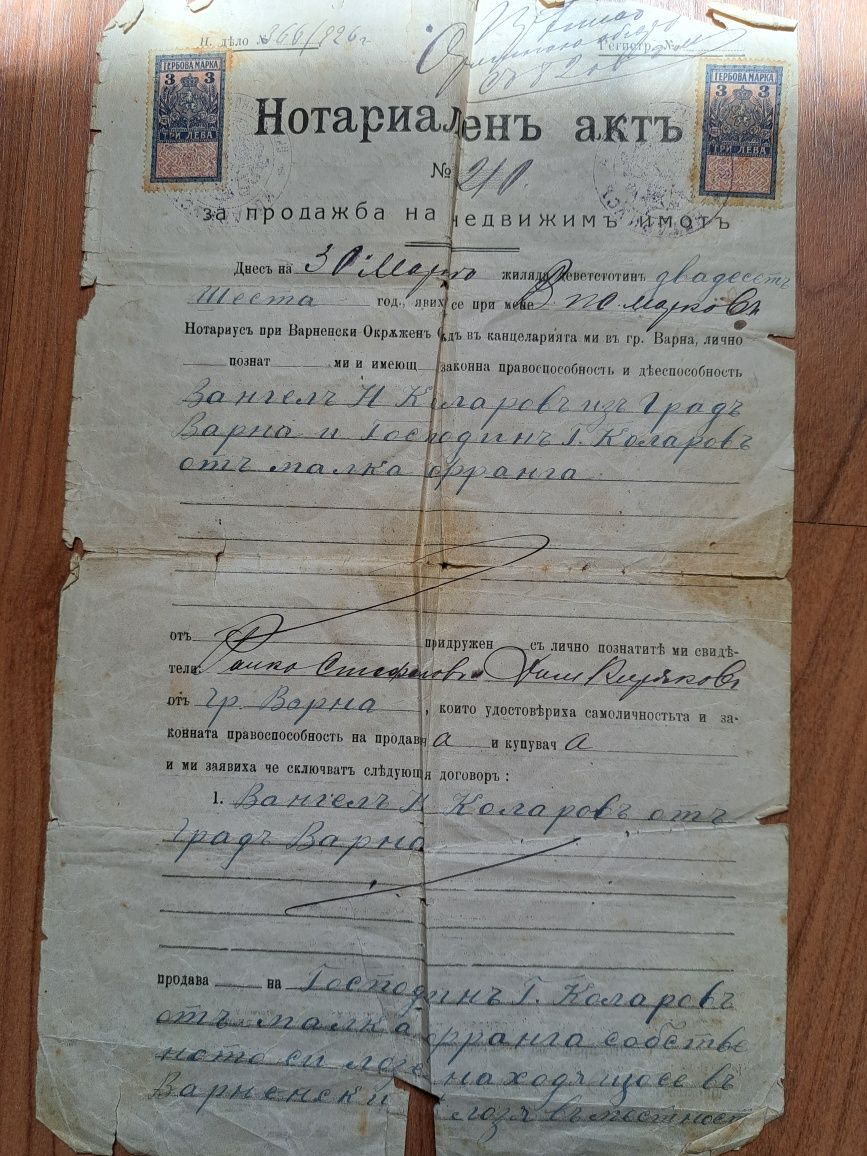 Н. дѣло № 366/926 г
Регистр. №
ГЕРБОВА МАРКА
3 3
ТРИ ЛЕВА
ГЕРБОВА МАРКА
3 3
ТРИ ЛЕВА
Нотариаленъ актъ
№ 210.
за продажба на недвижимъ имотъ
Днесъ на 30 Мартъ жилядо деветстотинъ двадесеть
шеста год., явиха се при мене
Нотариусъ при Варненски Окрѫженъ Сѫдъ въ канцеларията ми въ гр. Варна, лично
познат ми и имеющ законна правоспособность и дѣеспособность
Вангелъ Н Коларовъ изъ Градъ
Варна и Господинъ Г. Коларовъ
отъ малка франга
отъ придружен съ лично познатитѣ ми свидѣ-
тели:
отъ гр. Варна, които удостовѣриха самоличностьта и за-
конната правоспособность на продавача и купувача
и ми заявиха че сключватъ слѣдующия договоръ:
1. Вангелъ Н Коларовъ отъ
градъ Варна
продава на Господинъ Г. Коларовъ
отъ малка франга собстве
ното си лозе находящосе въ
Варненски лозя въ местност